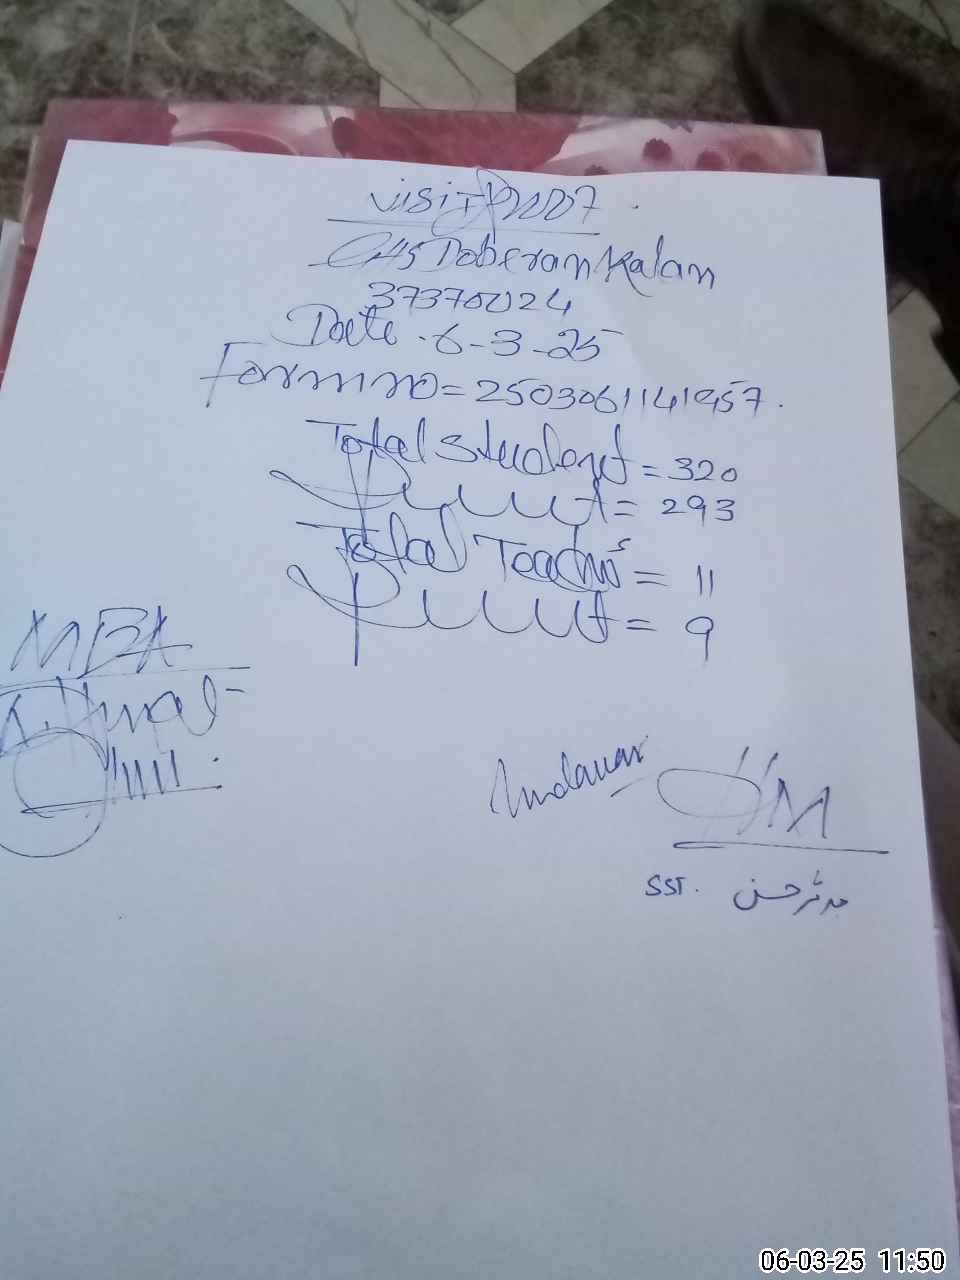 Visit Proof
GHS Doberan Kalan
37370024
Date . 6-3-25
Form no = 2503061141957.
Total student = 320
Present = 293
Total Teachers = 11
Present = 9
MEA
HM
SST. مدثر حسن
06-03-25 11:50